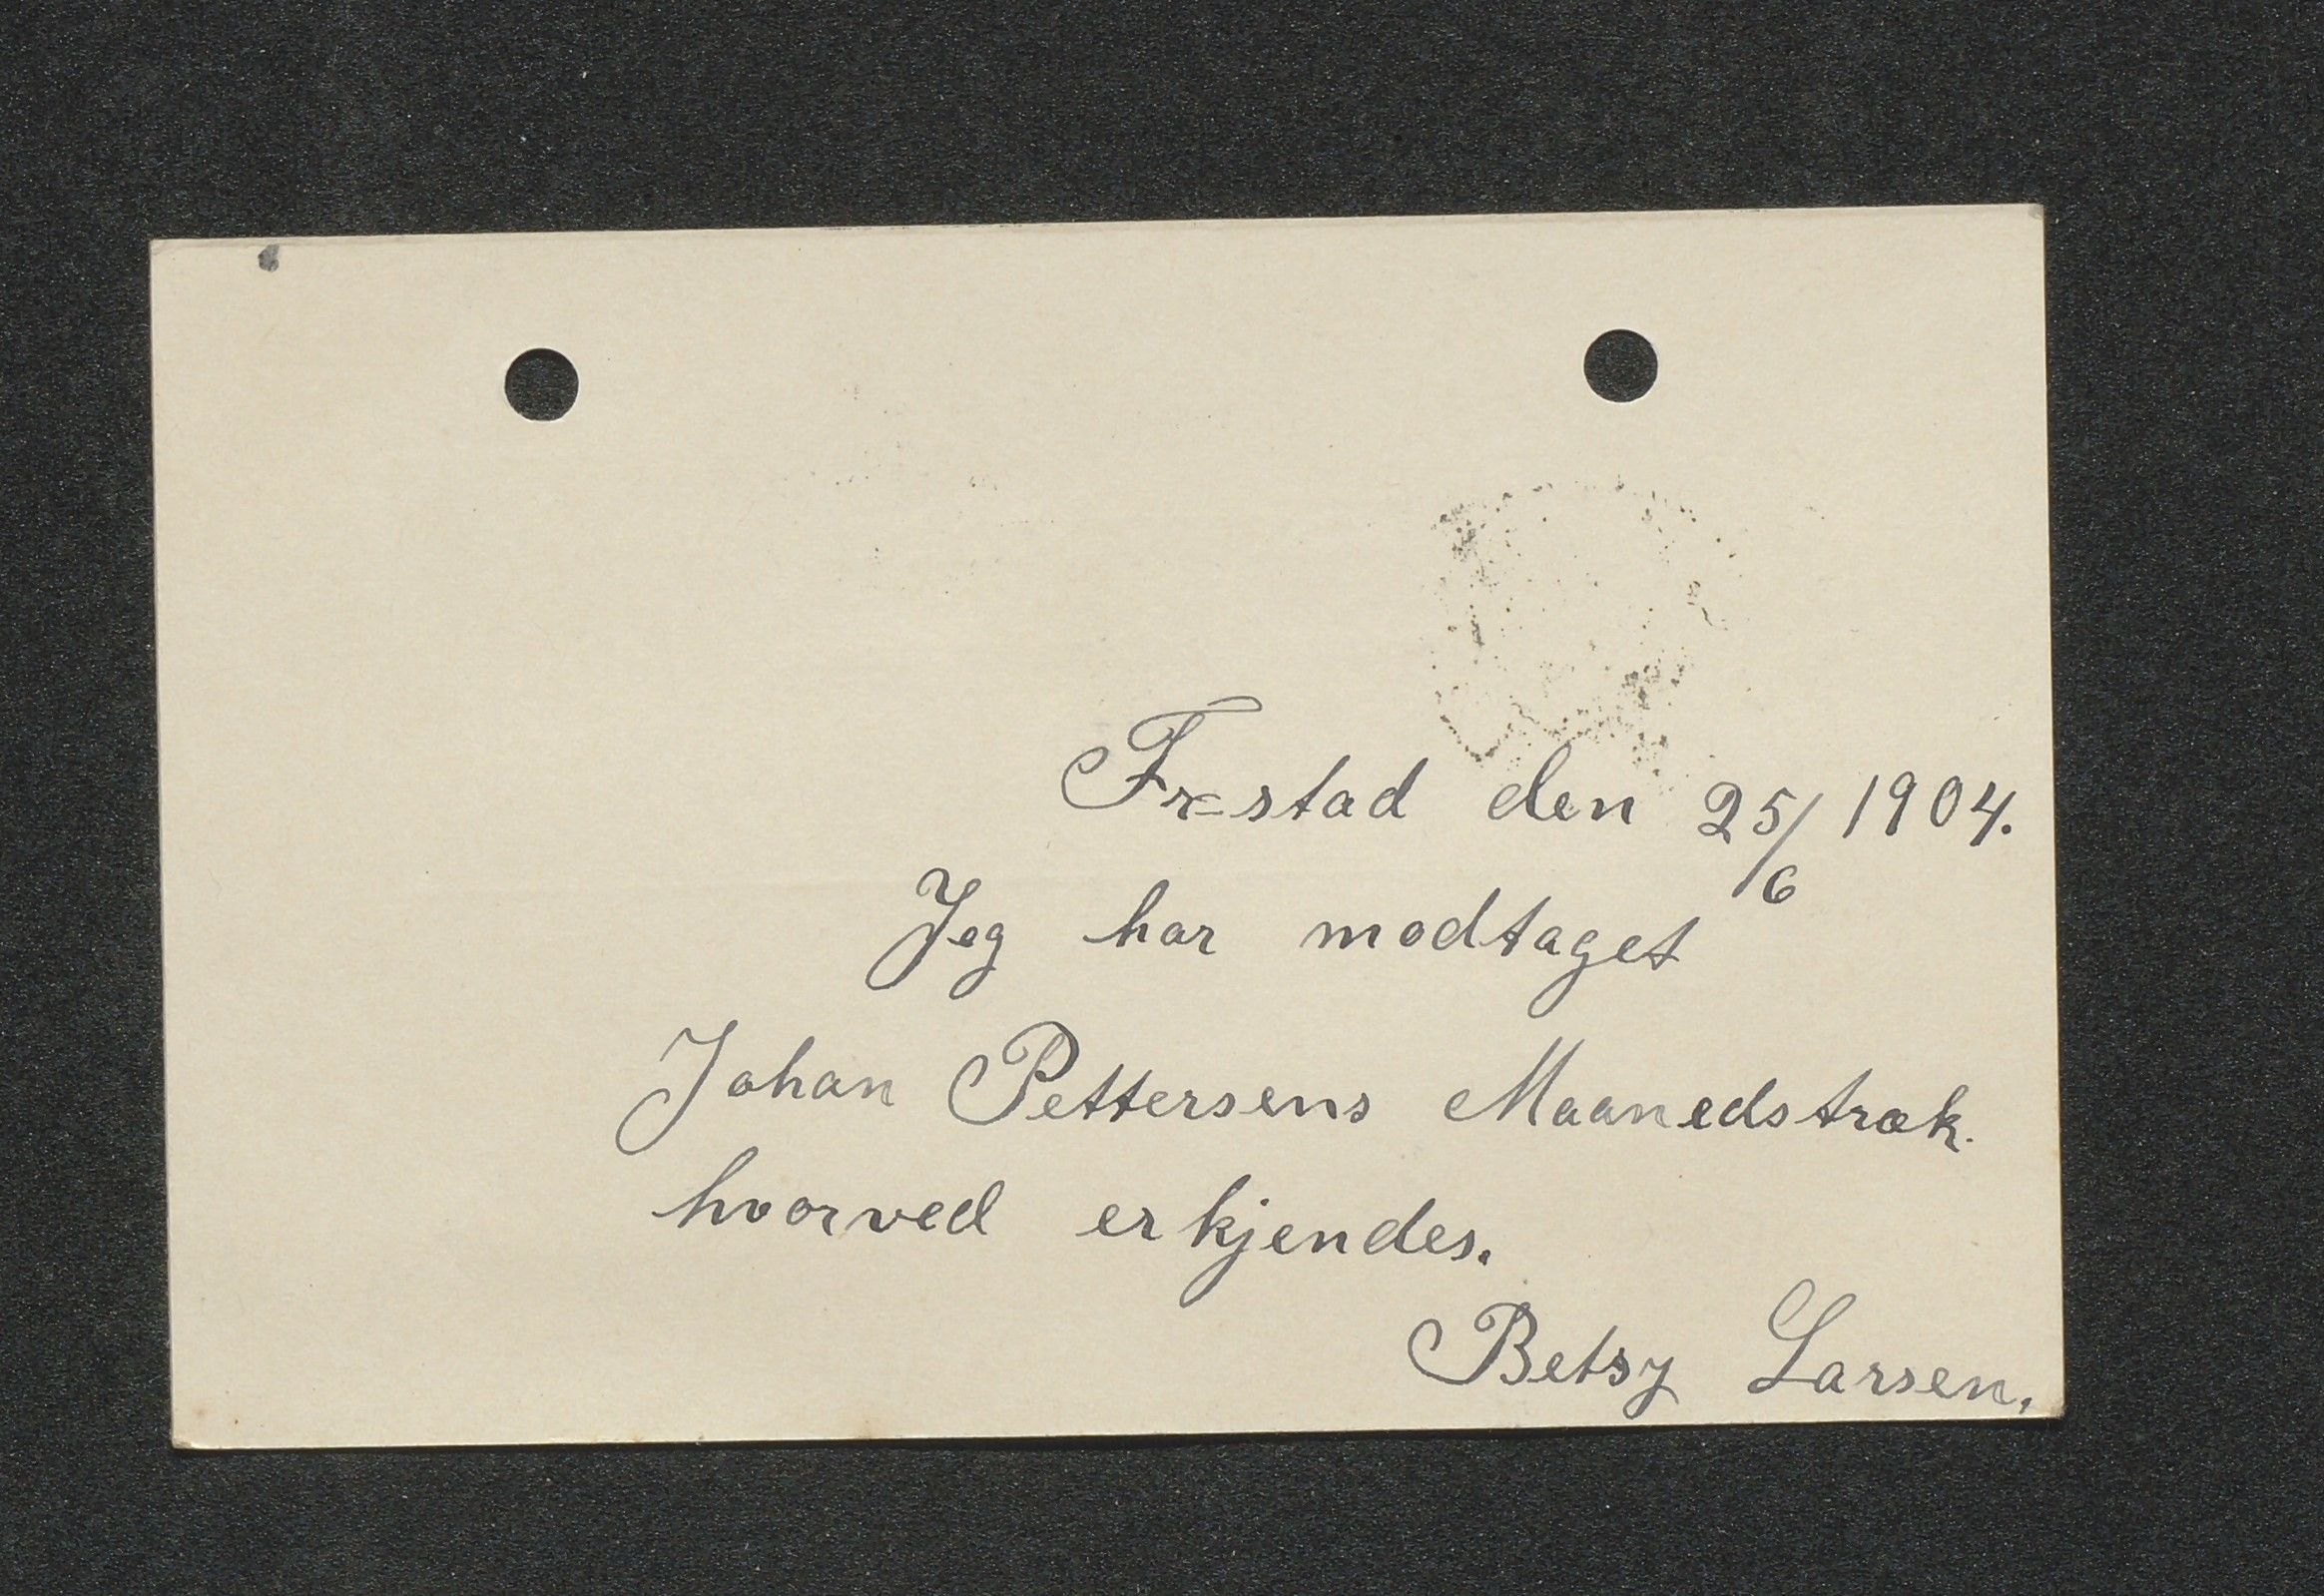 Fr=stad den 25/6 1904.
Jeg har modtaget
Johan Pettersens Maanedstræk.
hvorved erkjendes.
Betsy Larsen.